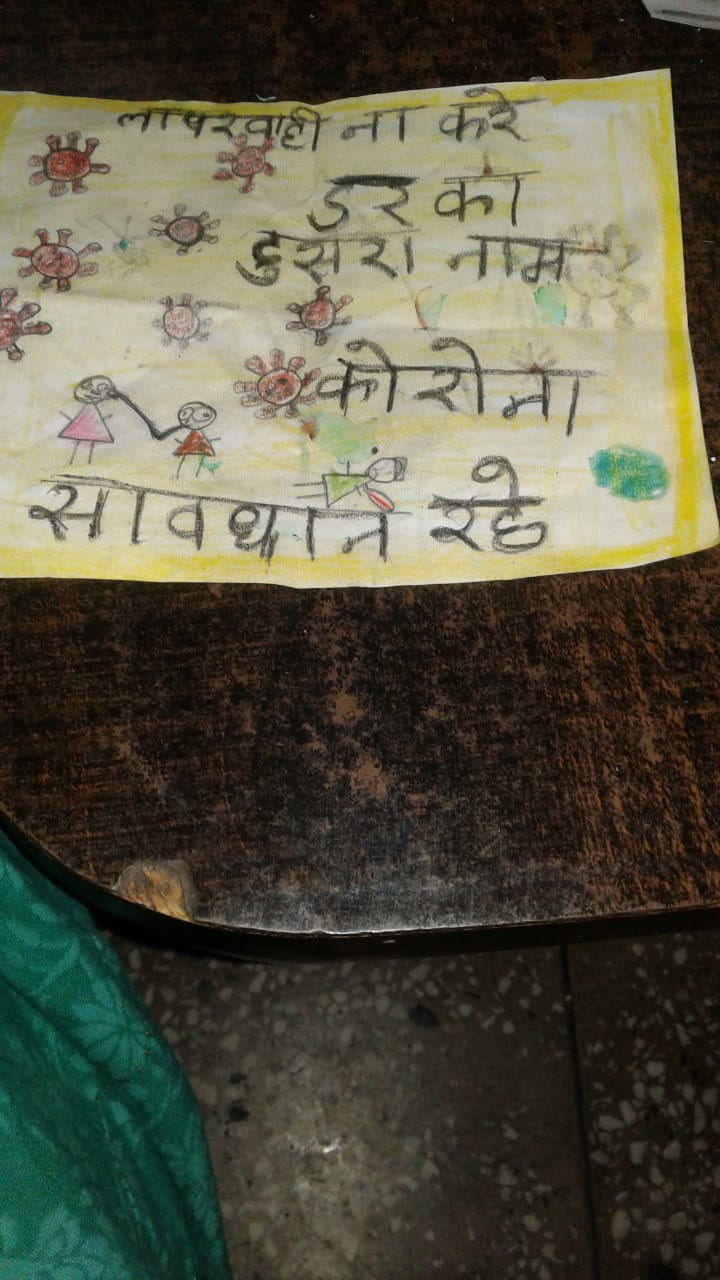 लापरवाही ना करे
डर का
दुसरा नाम
कोरोना
सावधान रहे